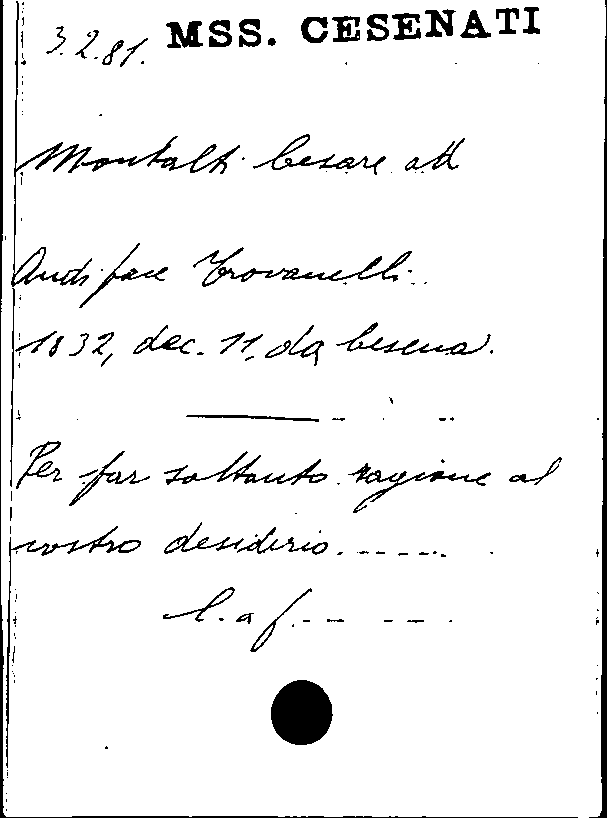 3.2.81. MSS. CESENATI
Montalti Cesare all
Audiface Trovanelli.
1832, dec. 11, da Cesena.
Per far soltanto ragione al
vostro desiderio.
l. a f.